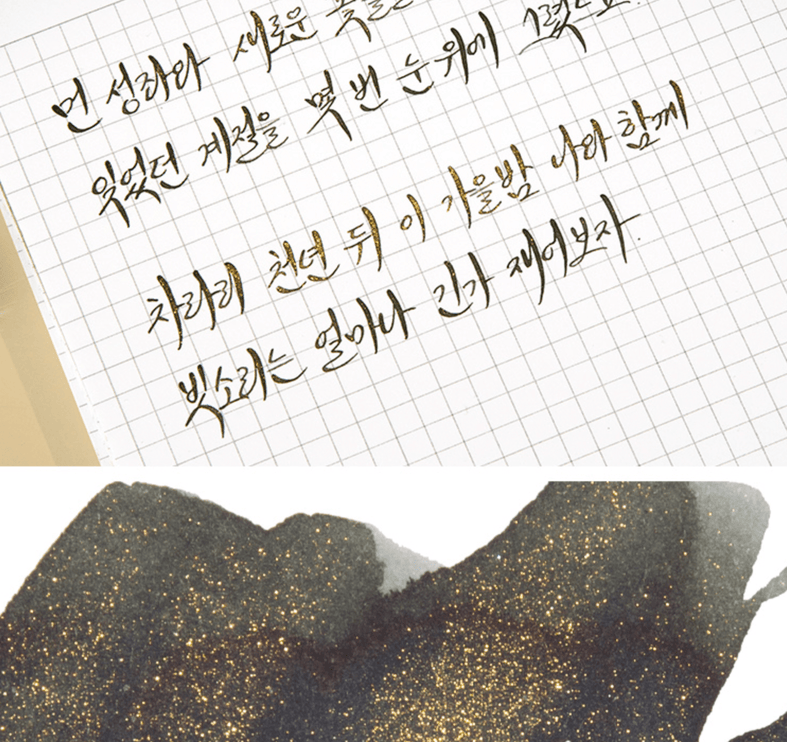 먼 성좌와 새로운
잊었던 계절을 몇 번 눈 위에 그렸느뇨
차라리 천년 뒤 이 가을밤 나와 함께
빗소리는 얼마나 긴가 재어보자.